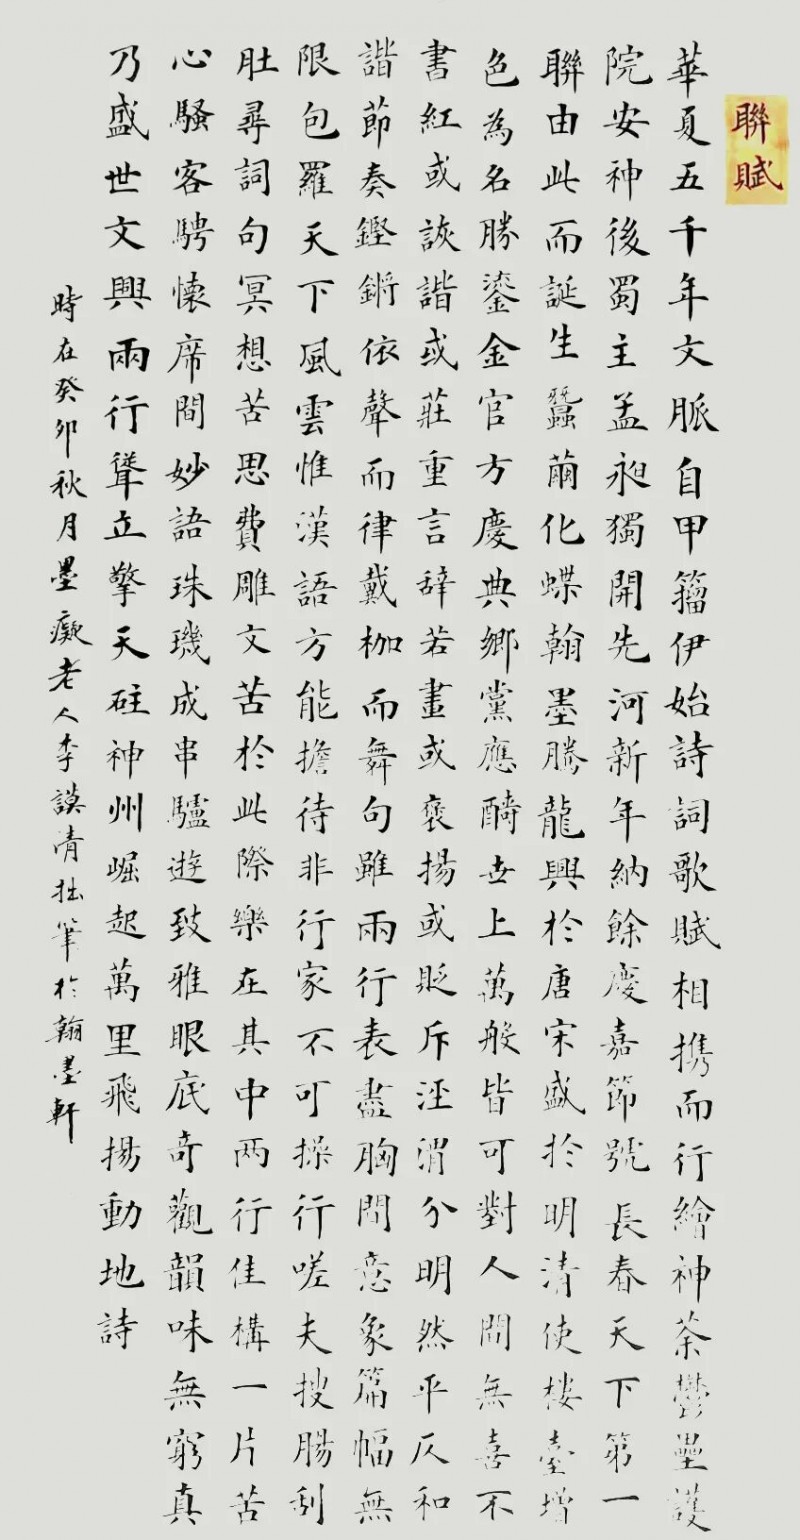 聯賦
華夏五千年文脈自甲籀伊始詩詞歌賦相携而行繪神荼鬱壘護
院安神後蜀主孟昶獨開先河新年納餘慶嘉節號長春天下第一
聯由此而誕生蠶繭化蝶翰墨騰龍興於唐宋盛於明清使樓臺增
色為名勝鎏金官方慶典鄉黨應酬世上萬般皆可對人間無喜不
書紅或詼諧或莊重言辭若畫或褒揚或貶斥涇渭分明然平仄和
諧節奏鏗鏘依聲而律戴枷而舞句雖兩行表盡胸間意象篇幅無
限包羅天下風雲惟漢語方能擔待非行家不可操行嗟夫搜腸刮
肚尋詞句冥想苦思費雕文苦於此際樂在其中兩行佳構一片苦
心騷客騁懷席間妙語珠璣成串驢遊致雅眼底奇觀韻味無窮真
乃盛世文興兩行聳立擎天砫神州崛起萬里飛揚動地詩
時在癸卯秋月墨癡老人李謨清拙筆於翰墨軒